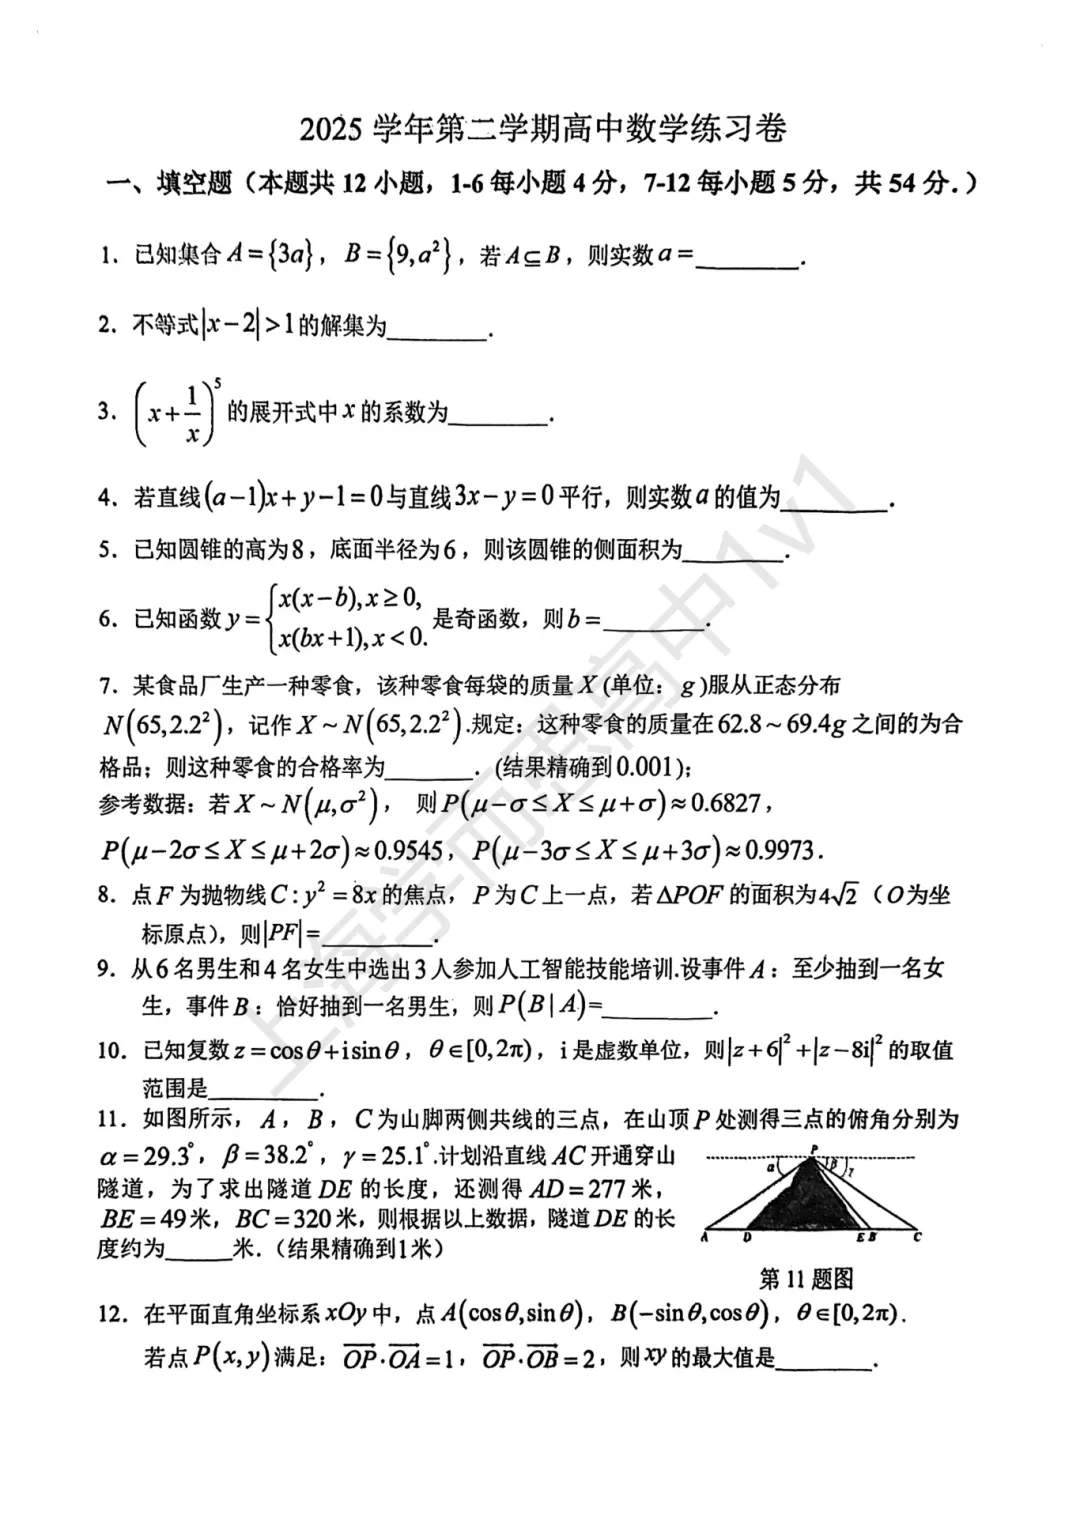 2025 学年第二学期高中数学练习卷
一、填空题（本题共 12 小题，1-6 每小题 4 分，7-12 每小题 5 分，共 54 分．）
1．已知集合 A={3a}，B={9,a²}，若 A⊆B，则实数 a=________．
2．不等式|x−2|>1的解集为________．
3．(x+1/x)⁵ 的展开式中 x 的系数为________．
4．若直线(a−1)x+y−1=0与直线3x−y=0平行，则实数 a 的值为________．
5．已知圆锥的高为8，底面半径为6，则该圆锥的侧面积为________．
6．已知函数 y={x(x−b),x≥0, x(bx+1),x<0. 是奇函数，则 b=________．
7．某食品厂生产一种零食，该种零食每袋的质量 X (单位：g)服从正态分布
N(65,2.2²)，记作 X~N(65,2.2²).规定：这种零食的质量在62.8~69.4g 之间的为合
格品；则这种零食的合格率为________．(结果精确到0.001)；
参考数据：若 X~N(μ,σ²)， 则 P(μ−σ≤X≤μ+σ)≈0.6827，
P(μ−2σ≤X≤μ+2σ)≈0.9545，P(μ−3σ≤X≤μ+3σ)≈0.9973．
8．点 F 为抛物线 C:y²=8x 的焦点，P 为 C 上一点，若 △POF 的面积为4√2（O为坐
标原点），则|PF|=________．
9．从6名男生和4名女生中选出3人参加人工智能技能培训.设事件 A：至少抽到一名女
生，事件 B：恰好抽到一名男生，则 P(B|A)=________．
10．已知复数 z=cosθ+isinθ，θ∈[0,2π)，i 是虚数单位，则|z+6|²+|z−8i|² 的取值
范围是________．
11．如图所示，A，B，C为山脚两侧共线的三点，在山顶 P 处测得三点的俯角分别为
α=29.3°，β=38.2°，γ=25.1°.计划沿直线 AC 开通穿山
隧道，为了求出隧道 DE 的长度，还测得 AD=277米，
BE=49米，BC=320米，则根据以上数据，隧道DE 的长
度约为______米．（结果精确到1米）
P
α β γ
A D E B C
第 11 题图
12．在平面直角坐标系 xOy 中，点 A(cosθ,sinθ)，B(−sinθ,cosθ)，θ∈[0,2π)．
若点 P(x,y)满足：OP·OA=1，OP·OB=2，则 xy 的最大值是________．
上海学而思高中1v1